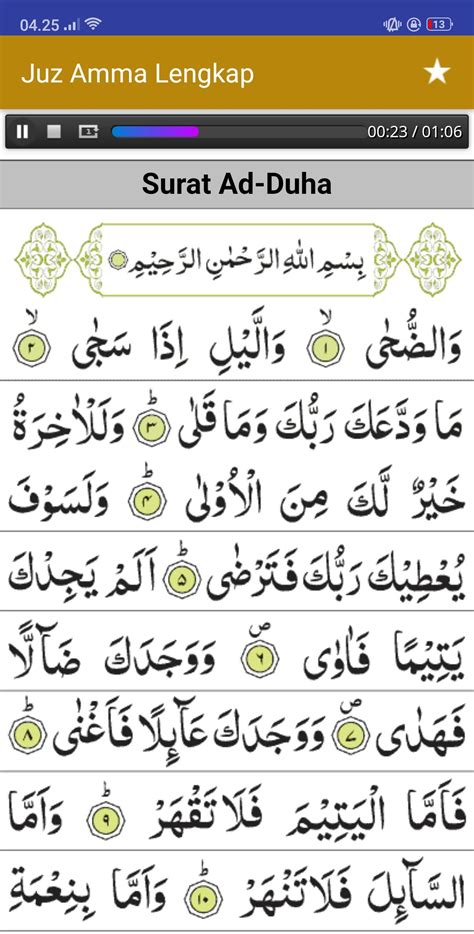 04.25
13
Juz Amma Lengkap
00:23 / 01:06
Surat Ad-Duha
بِسْمِ اللّٰهِ الرَّحْمٰنِ الرَّحِيْمِ
وَالضُّحٰى ۙ ١ وَالَّيْلِ اِذَا سَجٰى ۙ ٢
مَا وَدَّعَكَ رَبُّكَ وَمَا قَلٰى ۗ ٣ وَلَلْاٰخِرَةُ
خَيْرٌ لَّكَ مِنَ الْاُوْلٰى ۗ ٤ وَلَسَوْفَ
يُعْطِيْكَ رَبُّكَ فَتَرْضٰى ۗ ٥ اَلَمْ يَجِدْكَ
يَتِيْمًا فَاٰوٰى ۖ ٦ وَوَجَدَكَ ضَاۤلًّا
فَهَدٰى ۖ ٧ وَوَجَدَكَ عَاۤىِٕلًا فَاَغْنٰى ۗ ٨
فَاَمَّا الْيَتِيْمَ فَلَا تَقْهَرْ ۗ ٩ وَاَمَّا
السَّاۤىِٕلَ فَلَا تَنْهَرْ ۗ ١٠ وَاَمَّا بِنِعْمَةِ